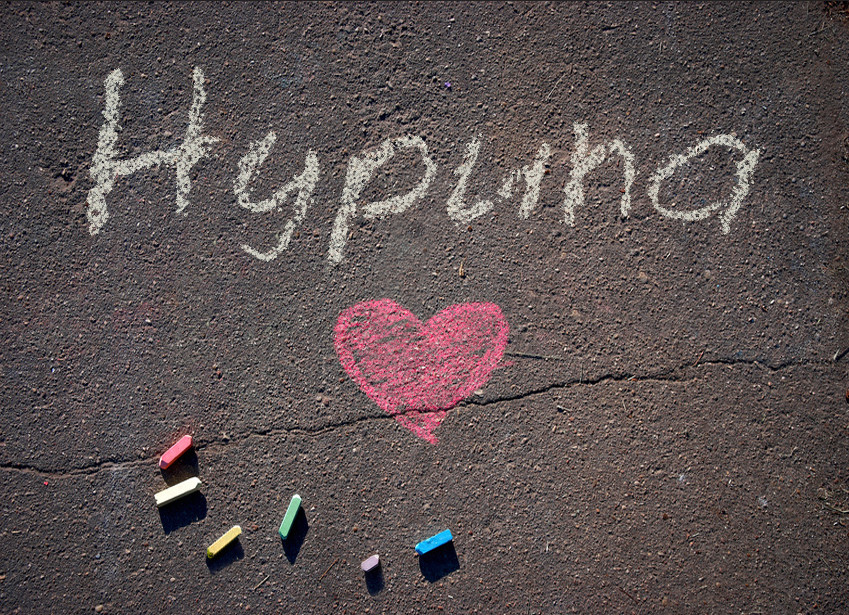 Нурипа